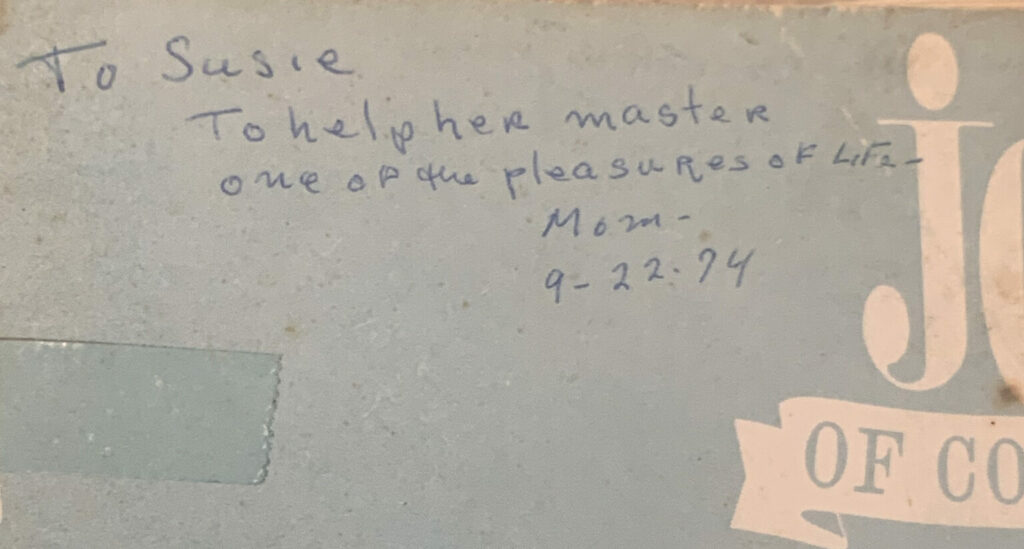 To Susie
To help her master
one of the pleasures of Life-
Mom-
9-22.74
jo
OF CO